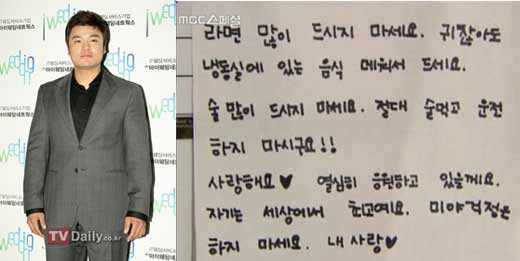 iwedding
IT웨딩서비스기업
㈜아이웨딩네트웍스
TVDaily.co.kr
MBC스페셜
라면 많이 드시지 마세요. 귀찮아도
냉동실에 있는 음식 데워서 드세요.
술 많이 드시지 마세요. 절대 술먹고 운전
하지 마시구요!!
사랑해요♥ 열심히 응원하고 있을께요.
자기는 세상에서 최고예요. 미야걱정은
하지 마세요. 내 사랑♥